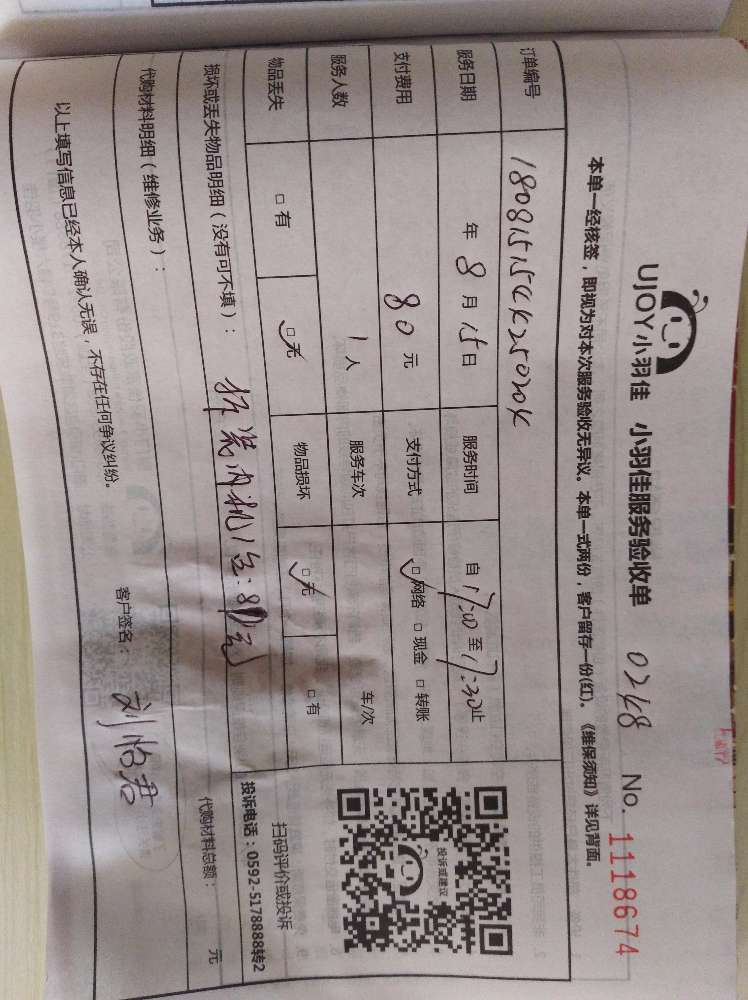 UJOY小羽佳 小羽佳服务验收单 0248 No. 1118674
本单一经核签，即视为对本次服务验收无异议。本单一式两份，客户留存一份(红)。《维保须知》详见背面。
订单编号
服务日期 年 8 月 15 日 服务时间 自 17:00 至 17:30 止
支付费用 80 元 支付方式 □网络 □现金 □转账
服务人数 1 人 服务车次 车/次
物品丢失 □有 □无 物品损坏 □无 □有
投诉或建议
扫码评价或投诉
投诉电话：0592-5178888转2
损坏或丢失物品明细（没有可不填）： 拆装内机1台：80元
代购材料明细（维修业务）： 代购材料总额： 元
以上填写信息已经本人确认无误，不存在任何争议纠纷。 客户签名： 刘怡君